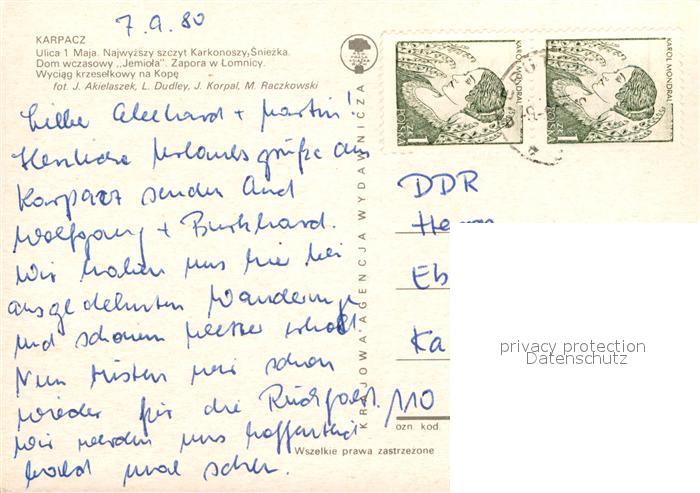 7.9.80
KARPACZ
Ulica 1 Maja. Najwyższy szczyt Karkonoszy, Śnieżka.
Dom wczasowy „Jemioła". Zapora w Łomnicy.
Wyciąg krzesełkowy na Kopę
fot. J. Akielaszek, L. Dudley, J. Korpal, M. Raczkowski
Liebe Ekkehard + Martin!
Herzliche Urlaubsgrüße aus
Karpacz senden Andi
Wolfgang + Burkhard.
Wir haben uns hie bei
ausgedehnten Wanderunge
und schönem Wetter erholt.
Nun rüsten wir schon
wieder für die Rückfahrt.
Wir werden uns hoffentlich
bald mal sehen.
KRAJOWA AGENCJA WYDAWNICZA
KAROL MONDRAL
POLSKA
1
KAROL MONDRAL
1
DDR
Herrn
Eb
Ka
110
ozn. kod.
Wszelkie prawa zastrzeżone
privacy protection
Datenschutz